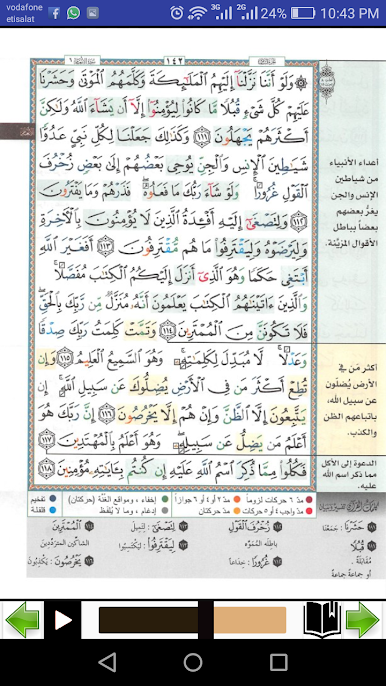 vodafone
etisalat
3G
2G
24%
10:43 PM
١٤٢
۞ وَلَوْ أَنَّنَا نَزَّلْنَا إِلَيْهِمُ الْمَلَٰٓئِكَةَ وَكَلَّمَهُمُ الْمَوْتَىٰ وَحَشَرْنَا
عَلَيْهِمْ كُلَّ شَىْءٍ قُبُلًا مَّا كَانُوا لِيُؤْمِنُوٓا إِلَّآ أَن يَشَآءَ اللَّهُ وَلَٰكِنَّ
أَكْثَرَهُمْ يَجْهَلُونَ ١١١ وَكَذَٰلِكَ جَعَلْنَا لِكُلِّ نَبِىٍّ عَدُوًّا
شَيَٰطِينَ الْإِنسِ وَالْجِنِّ يُوحِى بَعْضُهُمْ إِلَىٰ بَعْضٍ زُخْرُفَ
الْقَوْلِ غُرُورًا ۚ وَلَوْ شَآءَ رَبُّكَ مَا فَعَلُوهُ ۖ فَذَرْهُمْ وَمَا يَفْتَرُونَ
١١٢ وَلِتَصْغَىٰٓ إِلَيْهِ أَفْـِٔدَةُ الَّذِينَ لَا يُؤْمِنُونَ بِالْـَٔاخِرَةِ
وَلِيَرْضَوْهُ وَلِيَقْتَرِفُوا مَا هُم مُّقْتَرِفُونَ ١١٣ أَفَغَيْرَ اللَّهِ
أَبْتَغِى حَكَمًا وَهُوَ الَّذِىٓ أَنزَلَ إِلَيْكُمُ الْكِتَٰبَ مُفَصَّلًا ۚ
وَالَّذِينَ ءَاتَيْنَٰهُمُ الْكِتَٰبَ يَعْلَمُونَ أَنَّهُ مُنَزَّلٌ مِّن رَّبِّكَ بِالْحَقِّ ۖ
فَلَا تَكُونَنَّ مِنَ الْمُمْتَرِينَ ١١٤ وَتَمَّتْ كَلِمَتُ رَبِّكَ صِدْقًا
وَعَدْلًا ۚ لَّا مُبَدِّلَ لِكَلِمَٰتِهِ ۚ وَهُوَ السَّمِيعُ الْعَلِيمُ ١١٥ وَإِن
تُطِعْ أَكْثَرَ مَن فِى الْأَرْضِ يُضِلُّوكَ عَن سَبِيلِ اللَّهِ ۚ إِن
يَتَّبِعُونَ إِلَّا الظَّنَّ وَإِنْ هُمْ إِلَّا يَخْرُصُونَ ١١٦ إِنَّ رَبَّكَ هُوَ
أَعْلَمُ مَن يَضِلُّ عَن سَبِيلِهِ ۖ وَهُوَ أَعْلَمُ بِالْمُهْتَدِينَ ١١٧
فَكُلُوا مِمَّا ذُكِرَ اسْمُ اللَّهِ عَلَيْهِ إِن كُنتُم بِـَٔايَٰتِهِ مُؤْمِنِينَ ١١٨
أعداء الأنبياء
من شياطين
الإنس والجن
يغرُّ بعضهم
بعضاً بباطل
الأقوال المزيَّنة.
أكثر مَن في
الأرض يُضلّون
عن سبيل الله،
باتباعهم الظن
والكذب.
الدعوة إلى الأكل
مما ذكر اسم الله
عليه.
مدّ ٦ حركات لزوماً
مدّ ٢ أو ٤ أو ٦ جوازاً
إخفاء، ومواقع الغنّة (حركتان)
تفخيم
مدّ واجب ٤ أو ٥ حركات
مدّ حركتان
إدغام، وما لا يُلفظ
قلقلة
١١١ حَشَرْنَا : جَمَعْنَا
١١٢ زُخْرُفَ الْقَوْلِ
١١٣ لِتَصْغَىٰ : لِتَمِيلَ
١١٤ الْمُمْتَرِينَ
١١١ قُبُلًا
بَاطِلَه المُمَوَّه
١١٣ لِيَقْتَرِفُوا : لِيَكْتَسِبُوا
الشاكّين المتردّدين
مُقَابَلَةً
أو جماعةً جماعةً
١١٢ غُرُورًا : خِدَاعاً
١١٦ يَخْرُصُونَ : يَكْذِبُونَ